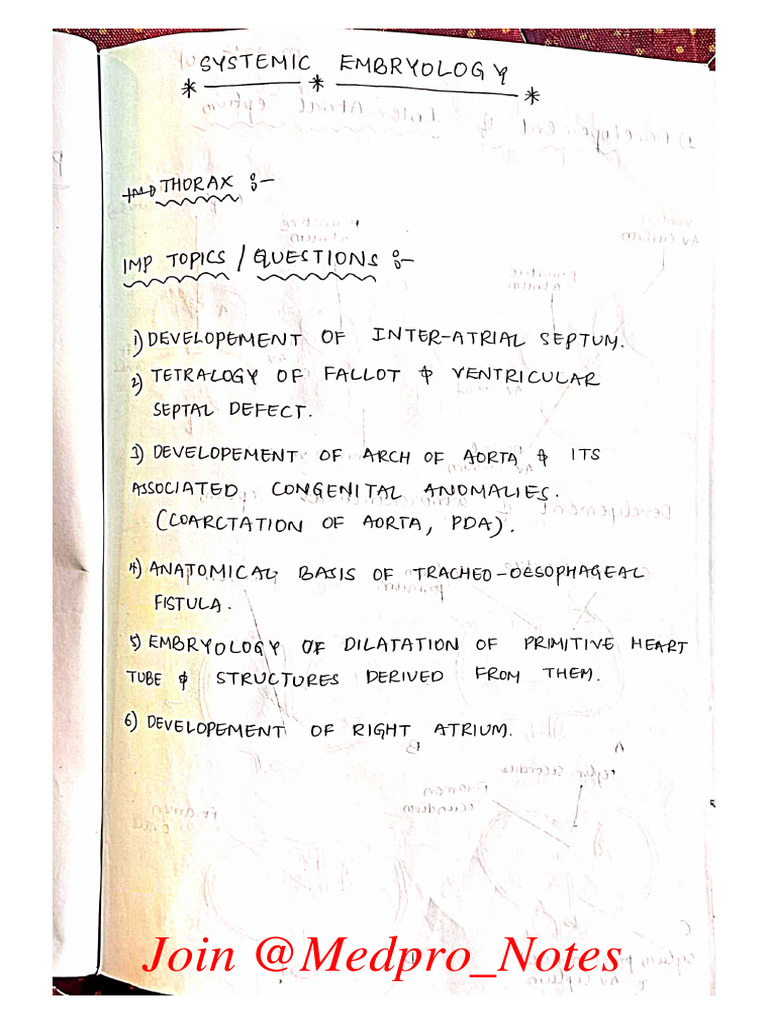 SYSTEMIC EMBRYOLOGY
THORAX :-
IMP TOPICS / QUESTIONS :-
1) DEVELOPEMENT OF INTER-ATRIAL SEPTUM.
2) TETRALOGY OF FALLOT & VENTRICULAR
SEPTAL DEFECT.
3) DEVELOPEMENT OF ARCH OF AORTA & ITS
ASSOCIATED CONGENITAL ANOMALIES.
(COARCTATION OF AORTA, PDA).
4) ANATOMICAL BASIS OF TRACHEO-OESOPHAGEAL
FISTULA.
5) EMBRYOLOGY OF DILATATION OF PRIMITIVE HEART
TUBE & STRUCTURES DERIVED FROM THEM.
6) DEVELOPEMENT OF RIGHT ATRIUM.
Join @Medpro_Notes